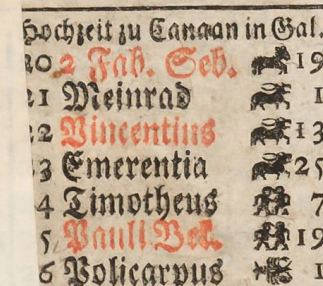 Hochzeit zu Canaan in Gal.
20 2 Fab. Seb. 19
21 Meinrad 1
22 Vincentius 13
3 Emerentia 25
4 Timotheus 7
5 Pauli Bek. 19
6 Policarpus 1